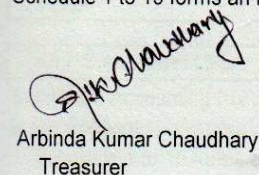 Schedule 1 to 10 forms an
Arbinda Kumar Chaudhary
Treasurer